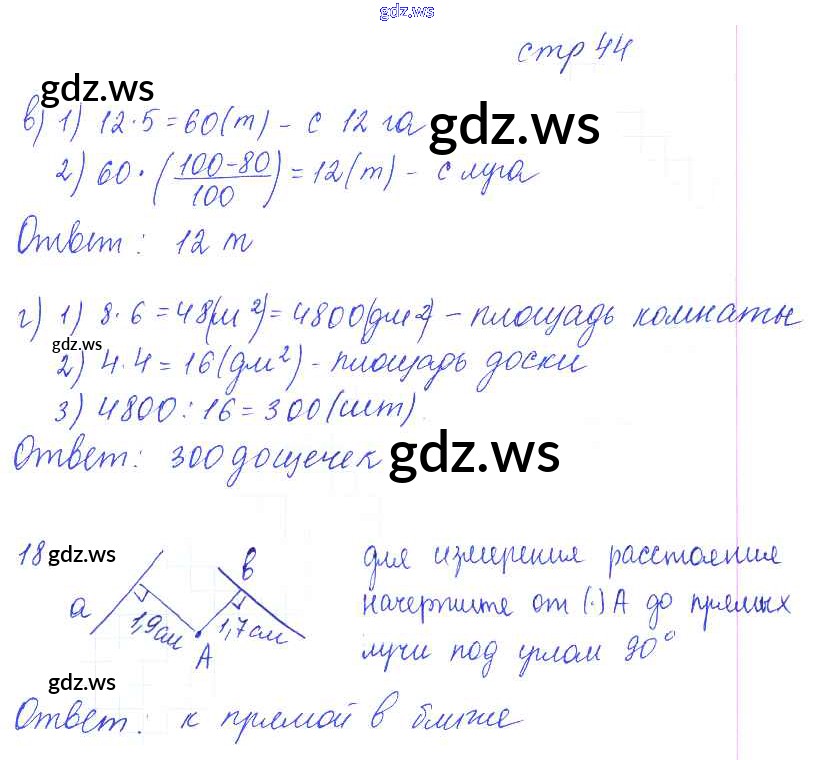 gdz.ws
стр 44
gdz.ws
в) 1) 12·5=60(т) – с 12 га
gdz.ws
2) 60·(100–80/100)=12(т) – с луга
Ответ: 12 т
г) 1) 8·6=48(м²)=4800(дм²) – площадь комнаты
gdz.ws
2) 4·4=16(дм²) – площадь доски
3) 4800:16=300(шт).
Ответ: 300 дощечек
gdz.ws
18
gdz.ws
а
в
1,9см
1,7см
А
для измерения расстояния
начертите от (·)А до прямых
лучи под углом 90°
gdz.ws
Ответ: к прямой в ближе